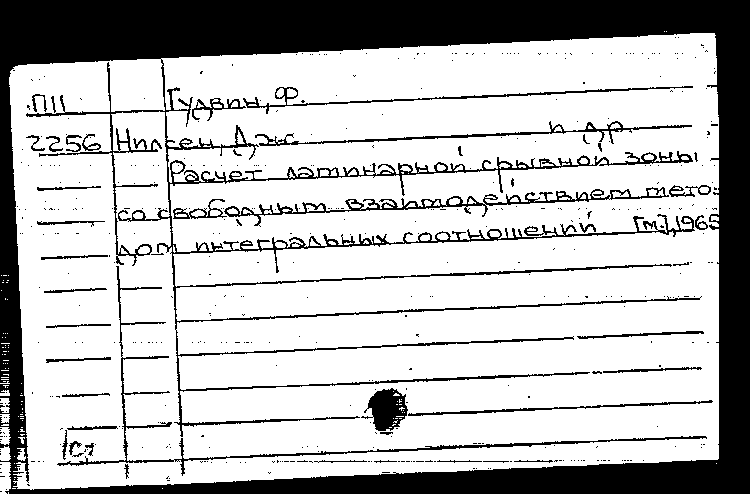 П11 Гудвин, Ф.
2256 Нилсен, Дж. и др.
Расчет ламинарной срывной зоны
со свободным взаимодействием мето-
дом интегральных соотношений [М.], 1965